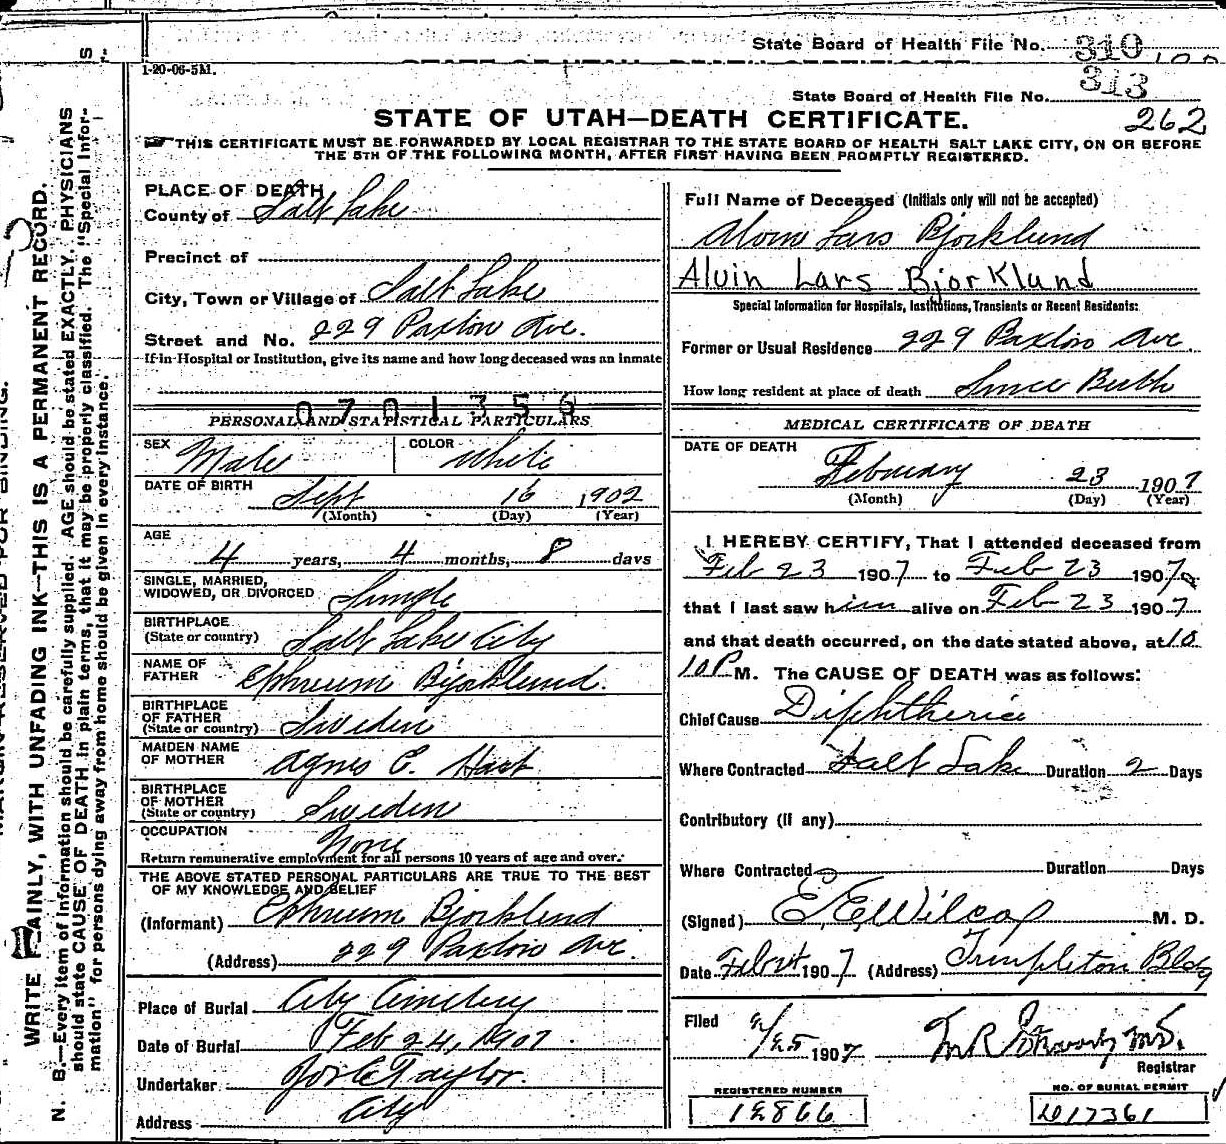 State Board of Health File No. 310
1-20-06-5M.
State Board of Health File No. 313
STATE OF UTAH—DEATH CERTIFICATE.
262
THIS CERTIFICATE MUST BE FORWARDED BY LOCAL REGISTRAR TO THE STATE BOARD OF HEALTH SALT LAKE CITY, ON OR BEFORE
THE 5TH OF THE FOLLOWING MONTH, AFTER FIRST HAVING BEEN PROMPTLY REGISTERED.
WRITE PLAINLY, WITH UNFADING INK—THIS IS A PERMANENT RECORD.
N. B.—Every item of information should be carefully supplied. AGE should be stated EXACTLY. PHYSICIANS
should state CAUSE OF DEATH in plain terms, that it may be properly classified. The "Special Infor-
mation" for persons dying away from home should be given in every instance.
PLACE OF DEATH
County of Salt Lake
Precinct of
City, Town or Village of Salt Lake
Street and No. 229 Paxton Ave.
If in Hospital or Institution, give its name and how long deceased was an inmate
0701356
PERSONAL AND STATISTICAL PARTICULARS
SEX Male COLOR White
DATE OF BIRTH Sept 16 1902
(Month) (Day) (Year)
AGE
4 years, 4 months, 8 days
SINGLE, MARRIED,
WIDOWED, OR DIVORCED Single
BIRTHPLACE
(State or country) Salt Lake City
NAME OF
FATHER Ephreum Bjorklund.
BIRTHPLACE
OF FATHER
(State or country) Sweden
MAIDEN NAME
OF MOTHER Agnes C.
BIRTHPLACE
OF MOTHER
(State or country) Sweden
OCCUPATION None
Return remunerative employment for all persons 10 years of age and over.
THE ABOVE STATED PERSONAL PARTICULARS ARE TRUE TO THE BEST
OF MY KNOWLEDGE AND BELIEF
(Informant) Ephreum Bjorklund
(Address) 229 Paxton Ave.
Place of Burial City Cemetery
Date of Burial Feb 24, 1907
Undertaker Jos E Taylor.
Address City
Full Name of Deceased (Initials only will not be accepted)
Alvin Lars Bjorklund
Alvin Lars Bjorklund
Special Information for Hospitals, Institutions, Transients or Recent Residents:
Former or Usual Residence 229 Paxton Ave.
How long resident at place of death Since Birth
MEDICAL CERTIFICATE OF DEATH
DATE OF DEATH
February 23 1907
(Month) (Day) (Year)
I HEREBY CERTIFY, That I attended deceased from
Feb 23 1907 to Feb 23 1907
that I last saw him alive on Feb 23 1907
and that death occurred, on the date stated above, at 10.
10 P M. The CAUSE OF DEATH was as follows:
Chief Cause Diphtheria
Where Contracted Salt Lake Duration 2 Days
Contributory (if any)
Where Contracted Duration Days
(Signed) E. E. Wilcox M. D.
Date Feb 24 1907 (Address) Templeton Bldg
Filed 2/25 1907 M.D.
Registrar
REGISTERED NUMBER
12866
NO. OF BURIAL PERMIT
17361